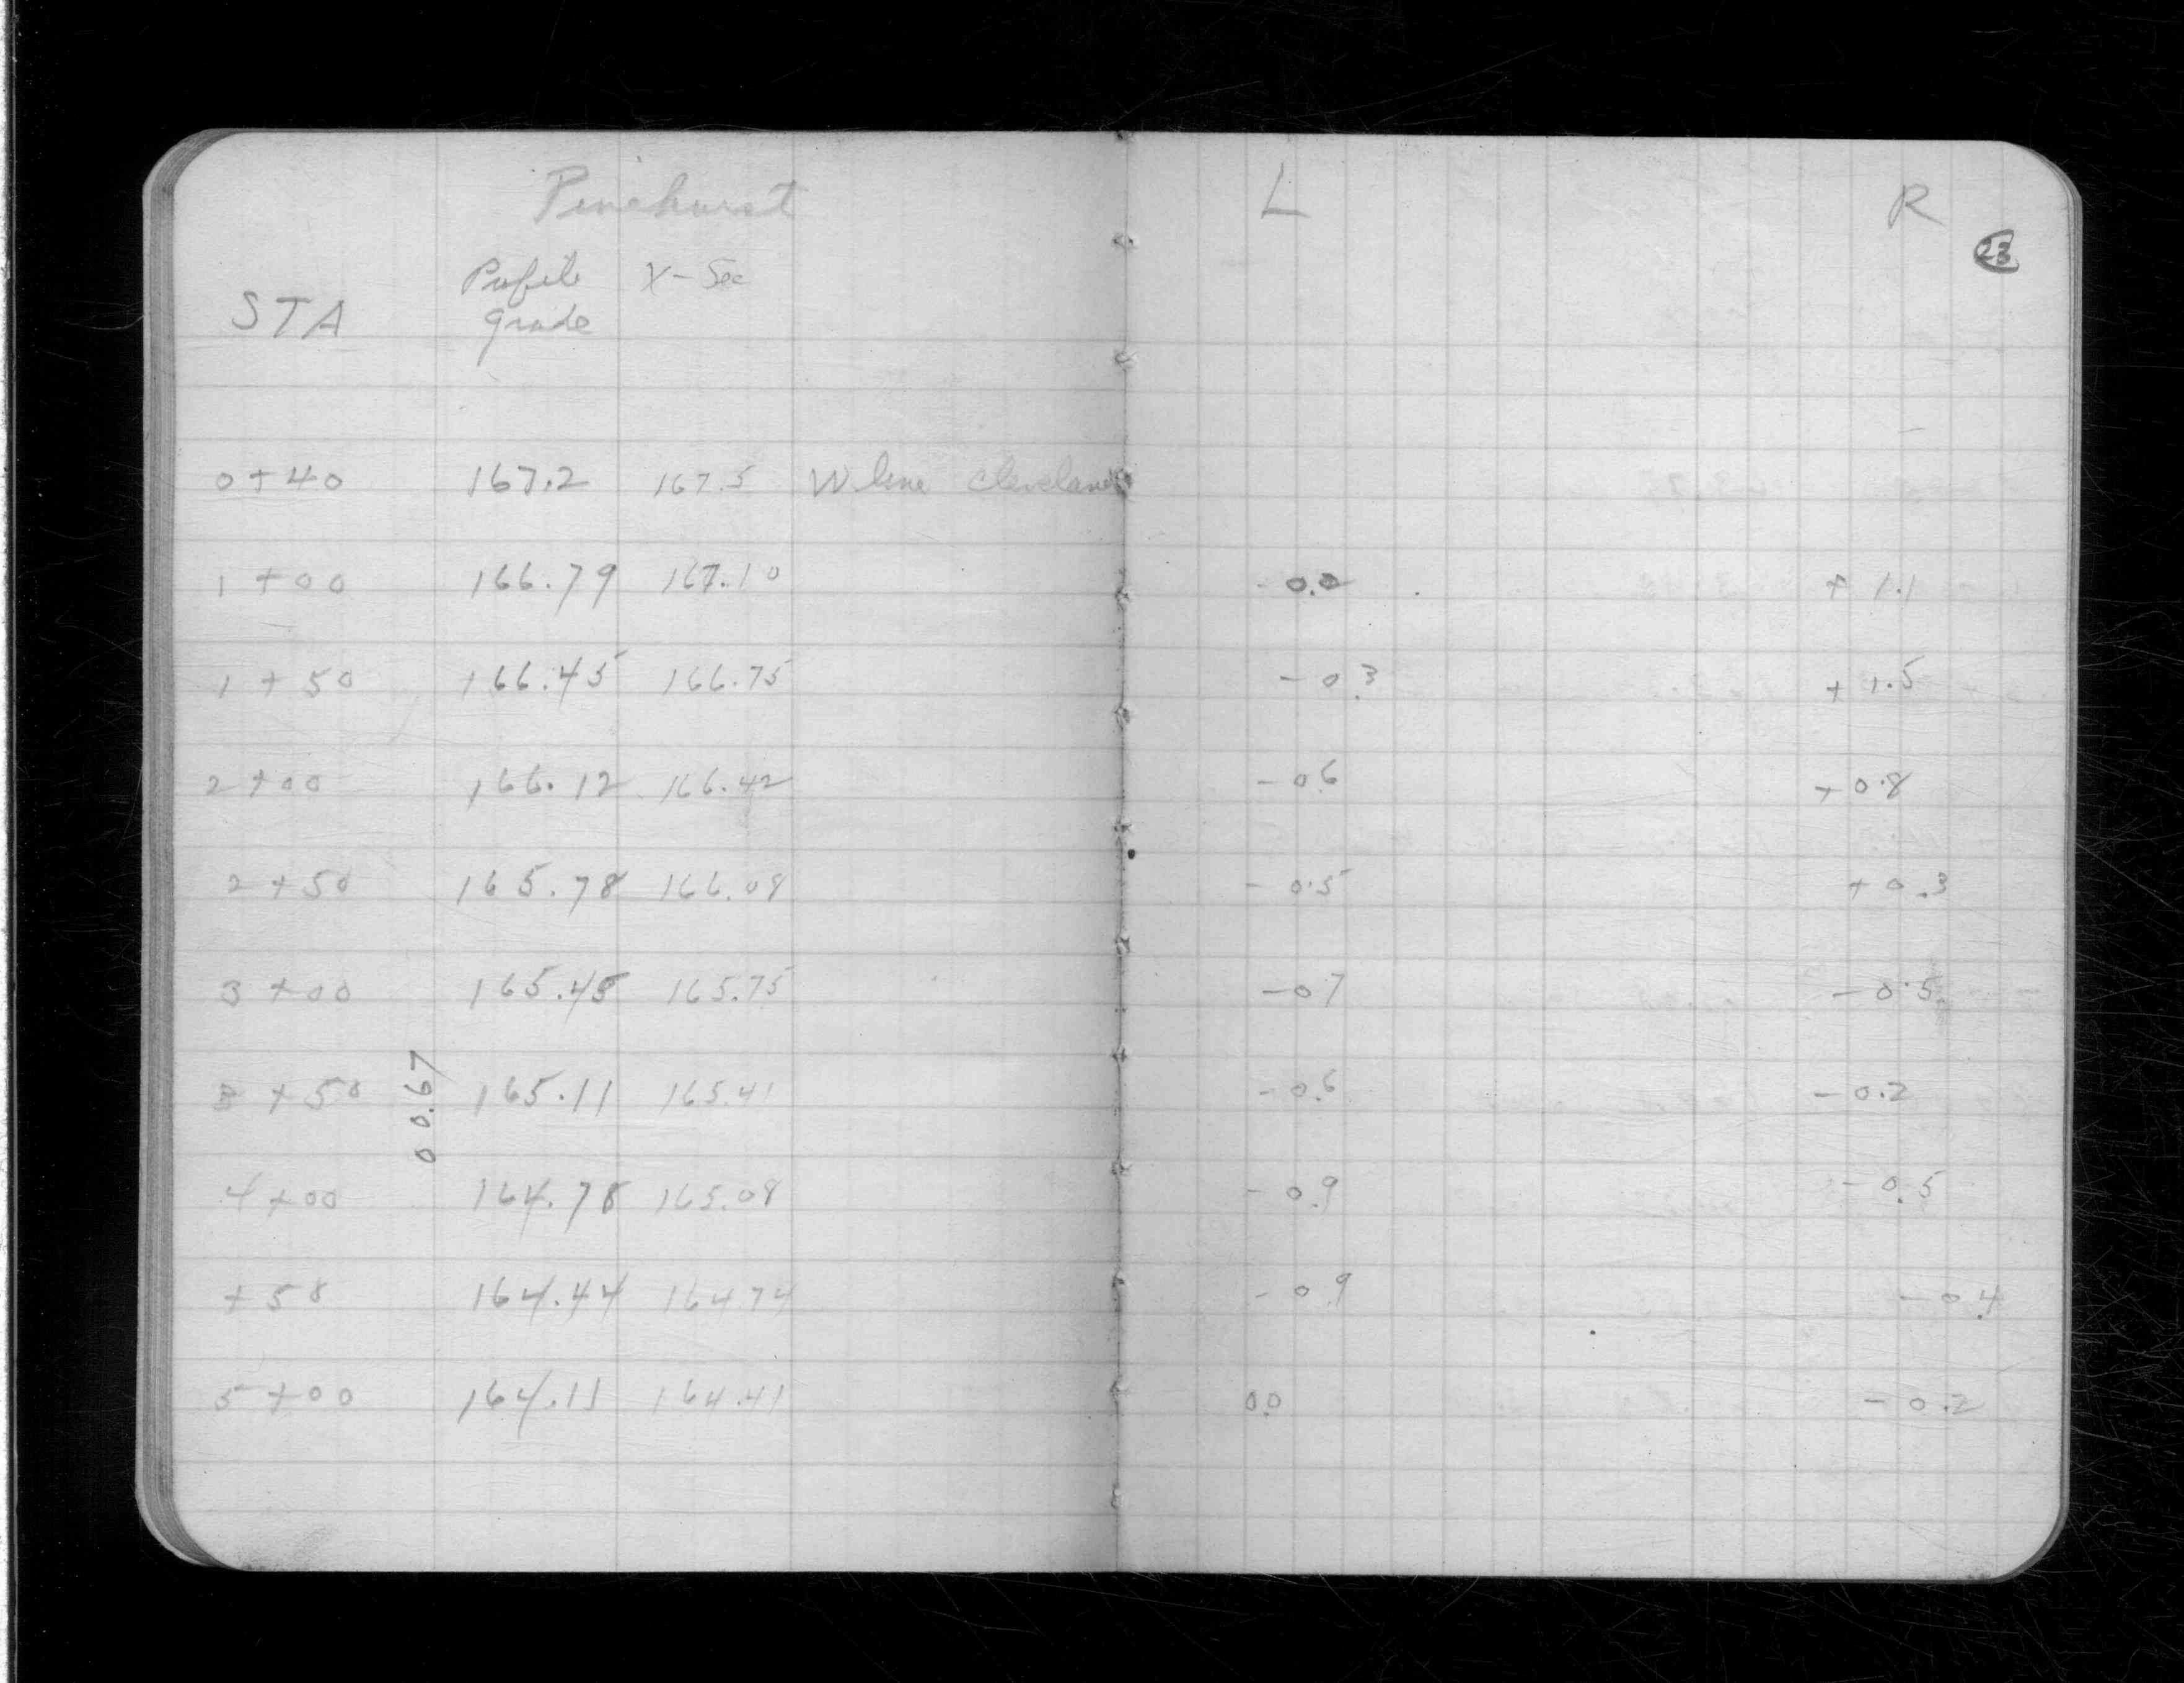 Pinehurst L R
23
STA Profile grade X-Sec
0+40 167.2 167.5 W line Cleveland
1+00 166.79 167.10 -0.0 +1.1
1+50 166.45 166.75 -0.3 +1.5
2+00 166.12 166.42 -0.6 +0.8
2+50 165.78 166.08 -0.5 +0.3
3+00 165.45 165.75 -0.7 -0.5
3+50 165.11 165.41 -0.6 -0.2
0 0.67
4+00 164.78 165.08 -0.9 -0.5
+58 164.44 164.74 -0.9 -0.4
5+00 164.11 164.41 0.0 -0.2